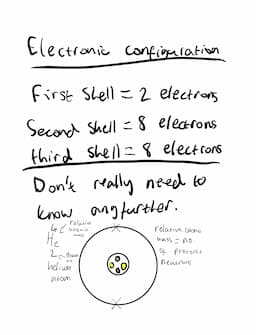 Electronic configuration
First shell = 2 electrons
Second shell = 8 electrons
third shell = 8 electrons
Don't really need to
know any further.
4 relative atomic mass
He
2
helium
atom
relative atomic
mass = no.
of protons
neutrons